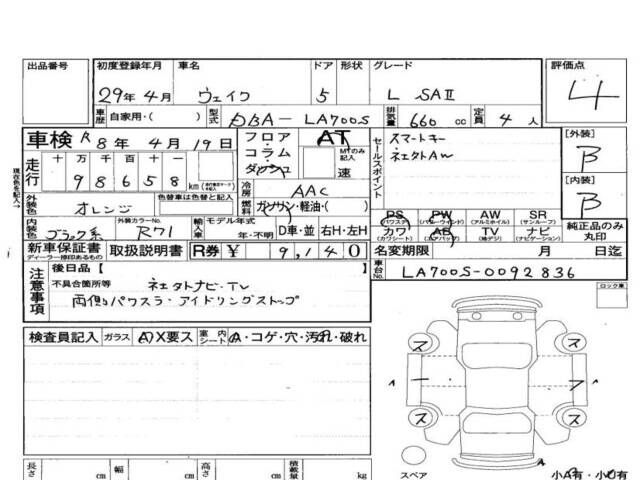 出品番号 初度登録年月 車名 ドア 形状 グレード 評価点
29年4月 ウェイク 5 L SAⅡ 4
車歴 自家用・( ) 型式 DBA-LA700S 排気量 660 cc 定員 4 人
車検 R 8年 4月 19日 フロア・コラム・ダッシュ AT MTのみ記入 速
走行 十万 万 千 百 十
98658 km
セールスポイント スマートキー
社外AW
[外装] B
[内装] B
現在色を記入→
外装色 オレンジ 色替車は色替と記入 冷房 AAC
燃料 ガソリン・軽油・( )
内装色 ブラック系 外装カラーNo. R71 輸入車 モデル年式 年・不明 D車・並 右H・左H
PS (パワステ) PW (パワーウインド) AW (アルミホイル) SR (サンルーフ)
カワ (カワシート) AB (エアバッグ) TV (純デジ) ナビ (ナビゲーション) 純正品のみ丸印
新車保証書 ディーラー捺印あるもの 取扱説明書 R券 ¥ 9,140 名変期限 月 日迄
注意事項 後日品【
不具合箇所等
両側パワスラ・アイドリングストップ
車台No. LA700S-0092836
ロック車
検査員記入 ガラス A X要ス 室内 シート A・コゲ・穴・汚れ・破れ
ス ス
A ア
ス ス
スペア 小A有・小U有
長さ cm 幅 cm 高さ cm 積載量 kg